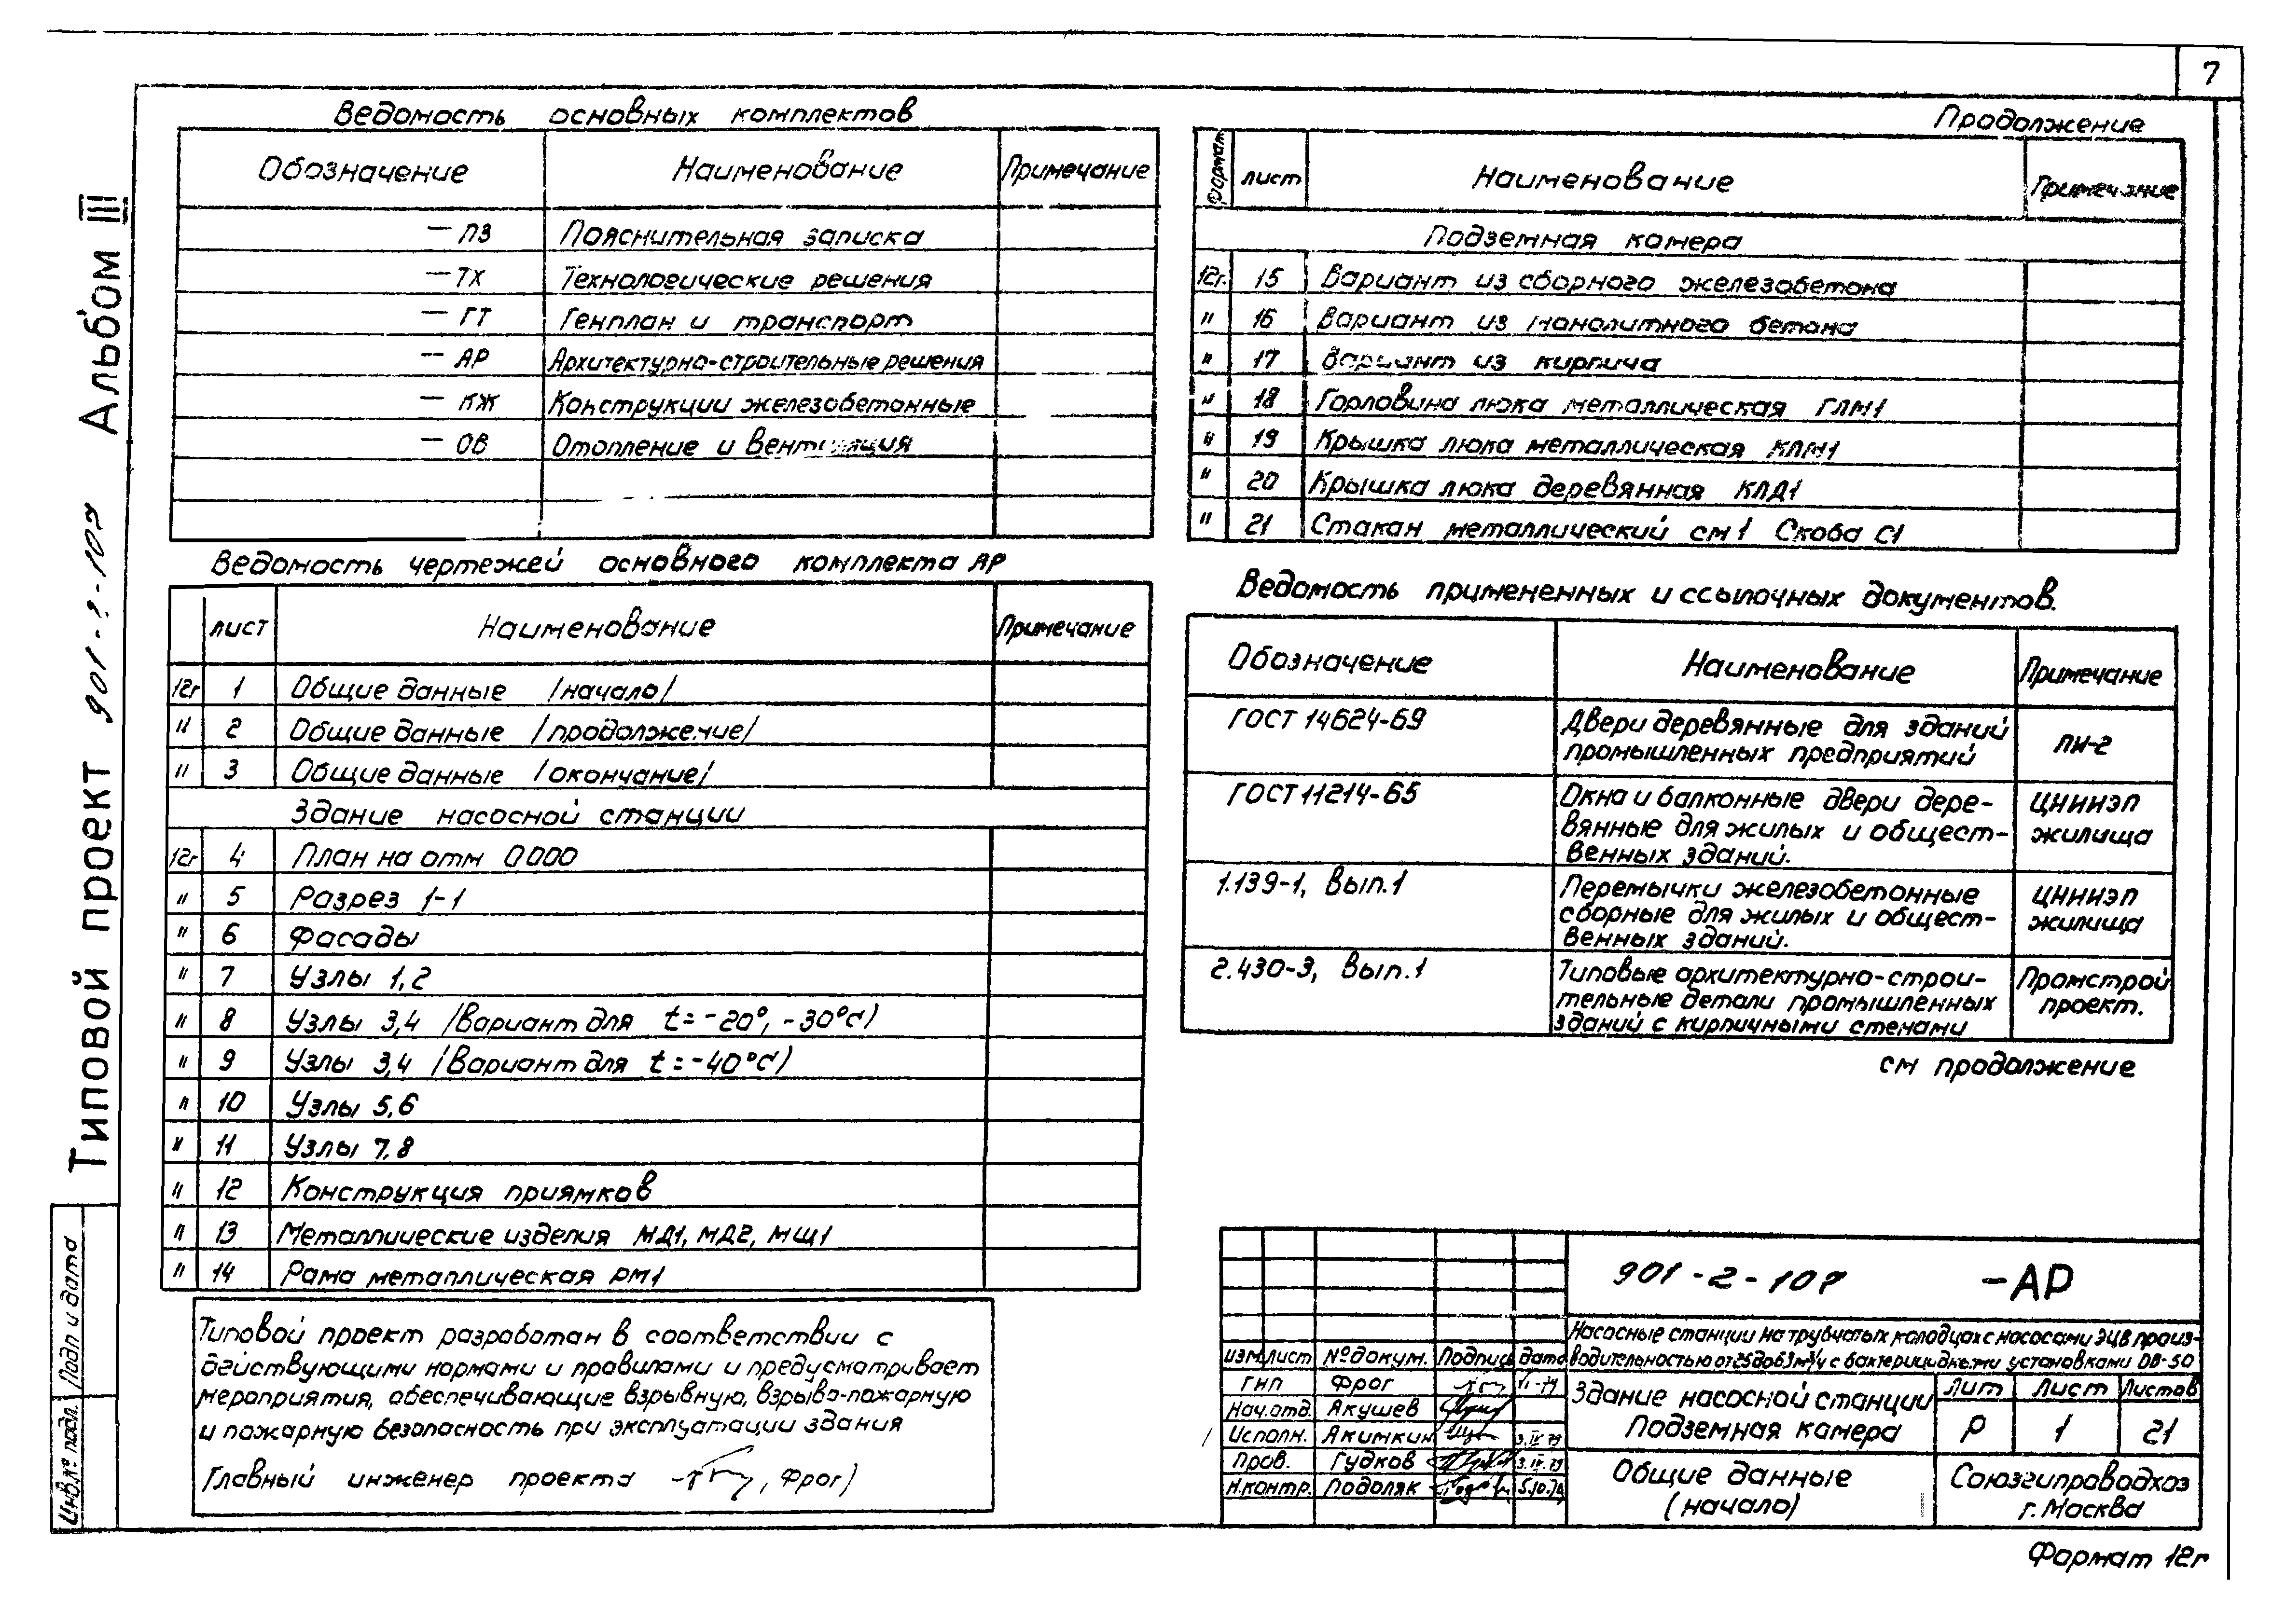 7
Типовой проект 901-2-107 Альбом III
Подп и дата
Инв.№ подл.
Ведомость основных комплектов
Обозначение Наименование Примечание
— ПЗ Пояснительная записка
— ТХ Технологические решения
— ГТ Генплан и транспорт
— АР Архитектурно-строительные решения
— КЖ Конструкции железобетонные
— ОВ Отопление и вентиляция
Ведомость чертежей основного комплекта АР
лист Наименование Примечание
12г 1 Общие данные /начало/
" 2 Общие данные /продолжение/
" 3 Общие данные /окончание/
Здание насосной станции
12г 4 План на отм 0000
" 5 Разрез 1-1
" 6 Фасады
" 7 Узлы 1,2
" 8 Узлы 3,4 /Вариант для t=-20°, -30°С)
" 9 Узлы 3,4 /Вариант для t=-40°С)
" 10 Узлы 5,6
" 11 Узлы 7,8
" 12 Конструкция приямков
" 13 Металлические изделия МД1, МД2, МЩ1
" 14 Рама металлическая РМ1
Типовой проект разработан в соответствии с
действующими нормами и правилами и предусматривает
мероприятия, обеспечивающие взрывную, взрыво-пожарную
и пожарную безопасность при эксплуатации здания
Главный инженер проекта , Фрог)
Продолжение
Формат лист Наименование Примечание
Подземная камера
12г. 15 Вариант из сборного железобетона
" 16 Вариант из монолитного бетона
" 17 Вариант из кирпича
" 18 Горловина люка металлическая ГЛМ1
" 19 Крышка люка металлическая КЛМ1
" 20 Крышка люка деревянная КЛД1
" 21 Стакан металлический см1 Скоба С1
Ведомость примененных и ссылочных документов.
Обозначение Наименование Примечание
ГОСТ 14624-69 Двери деревянные для зданий
промышленных предприятий ПИ-2
ГОСТ 11214-65 Окна и балконные двери дере-
вянные для жилых и общест-
венных зданий. ЦНИИЭП
жилища
1.139-1, Вып.1 Перемычки железобетонные
сборные для жилых и общест-
венных зданий. ЦНИИЭП
жилища
2.430-3, Вып.1 Типовые архитектурно-строи-
тельные детали промышленных
зданий с кирпичными стенами Промстрой
проект.
см продолжение
901-2-107 -АР
Насосные станции на трубчатых колодцах с насосами ЭЦВ произ-
водительностью от 25 до 63 м³/ч с бактерицидными установками ОВ-50
изм. лист №докум. Подпись дата
ГИП Фрог
Нач.отд. Якушев
Исполн. Акимкин 3.IV.79
Пров. Гудков 3.IV.79
Н.контр. Подоляк
Здание насосной станции
Подземная камера
Лит Лист Листов
Р 1 21
Общие данные
(начало)
Союзгипроводхоз
г. Москва
Формат 12г